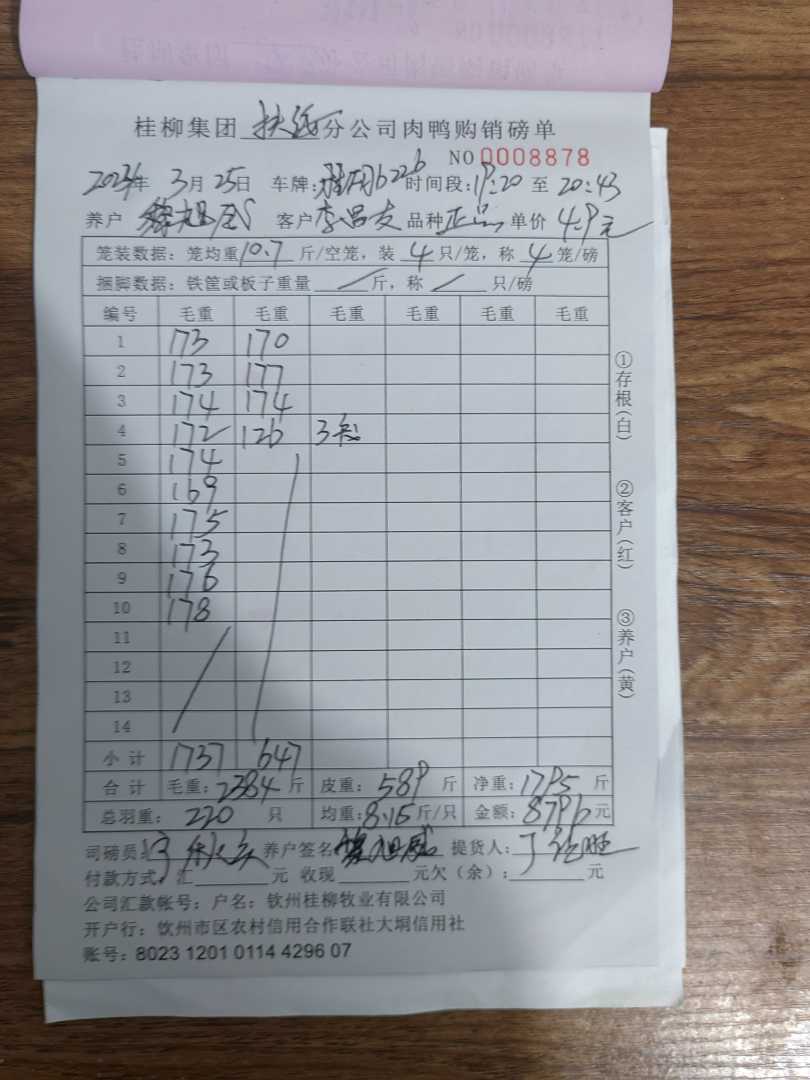 桂柳集团 扶绥 分公司肉鸭购销磅单
NO 0008878
2024年 3月25日 车牌: 6226 时间段: 19:20 至 20:43
养户 客户 李昌友 品种 正品 单价 4.9元
笼装数据：笼均重 10.7 斤/空笼，装 4 只/笼，称 4 笼/磅
捆脚数据：铁筐或板子重量 / 斤，称 / 只/磅
编号 毛重 毛重 毛重 毛重 毛重 毛重
1 173 170
2 173 177
3 174 174
4 172 126 3
5 174
6 169
7 175
8 173
9 176
10 178
11
12
13
14
小计 1737 647
合计 毛重：2384 斤 皮重：589 斤 净重：1795 斤
总羽重：220 只 均重：8.15 斤/只 金额：8796 元
司磅员: 养户签名 提货人：
付款方式：汇 元 收现 元欠（余）： 元
公司汇款帐号：户名：钦州桂柳牧业有限公司
开户行：钦州市区农村信用合作联社大垌信用社
账号：8023 1201 0114 4296 07
①存根(白)
②客户(红)
③养户(黄)